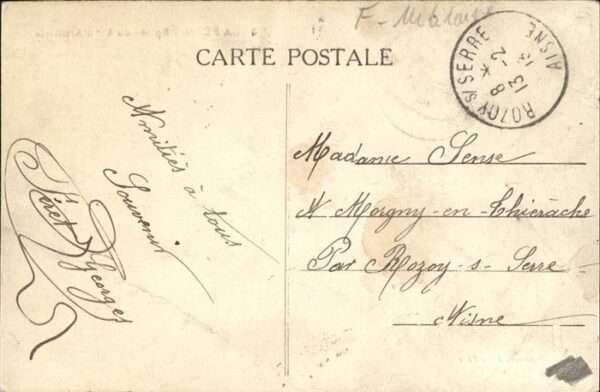 CARTE POSTALE
ROZOY S/ SERRE
AISNE
8 *
13 -2
13
Amitiés à tous
Souvenir
Georges
Madame Sense
A Moigny-en-Thiérache
Par Rozoy-s-Serre
Aisne